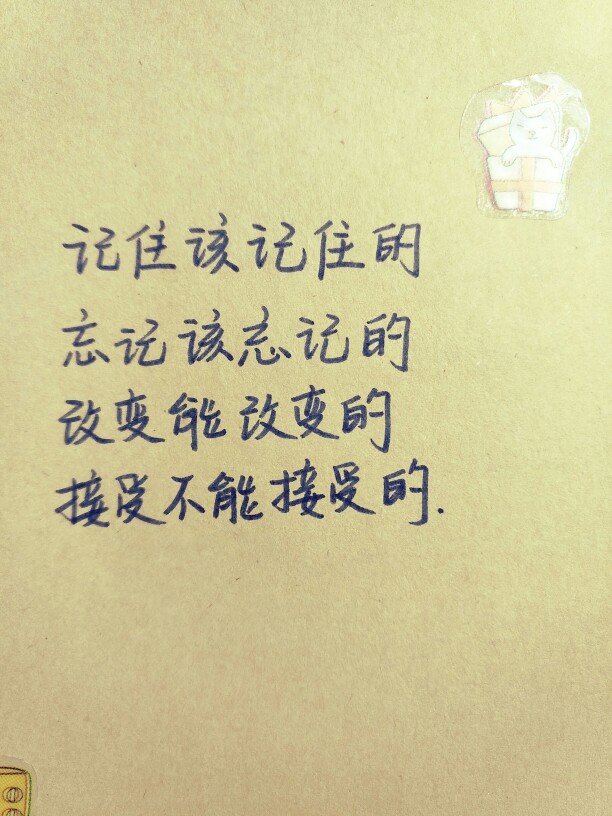 记住该记住的
忘记该忘记的
改变能改变的
接受不能接受的.